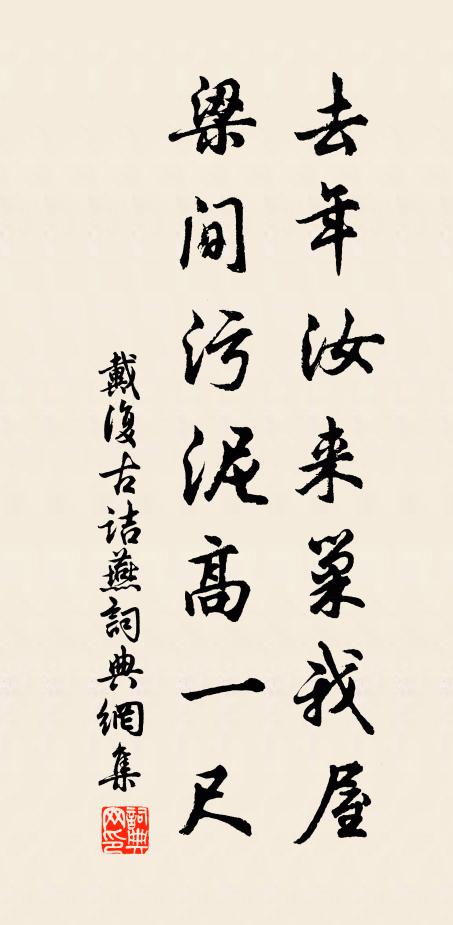 去年汝来巢我屋
梁间污泥高一尺
戴復古詰燕詞典網集
詞典網印